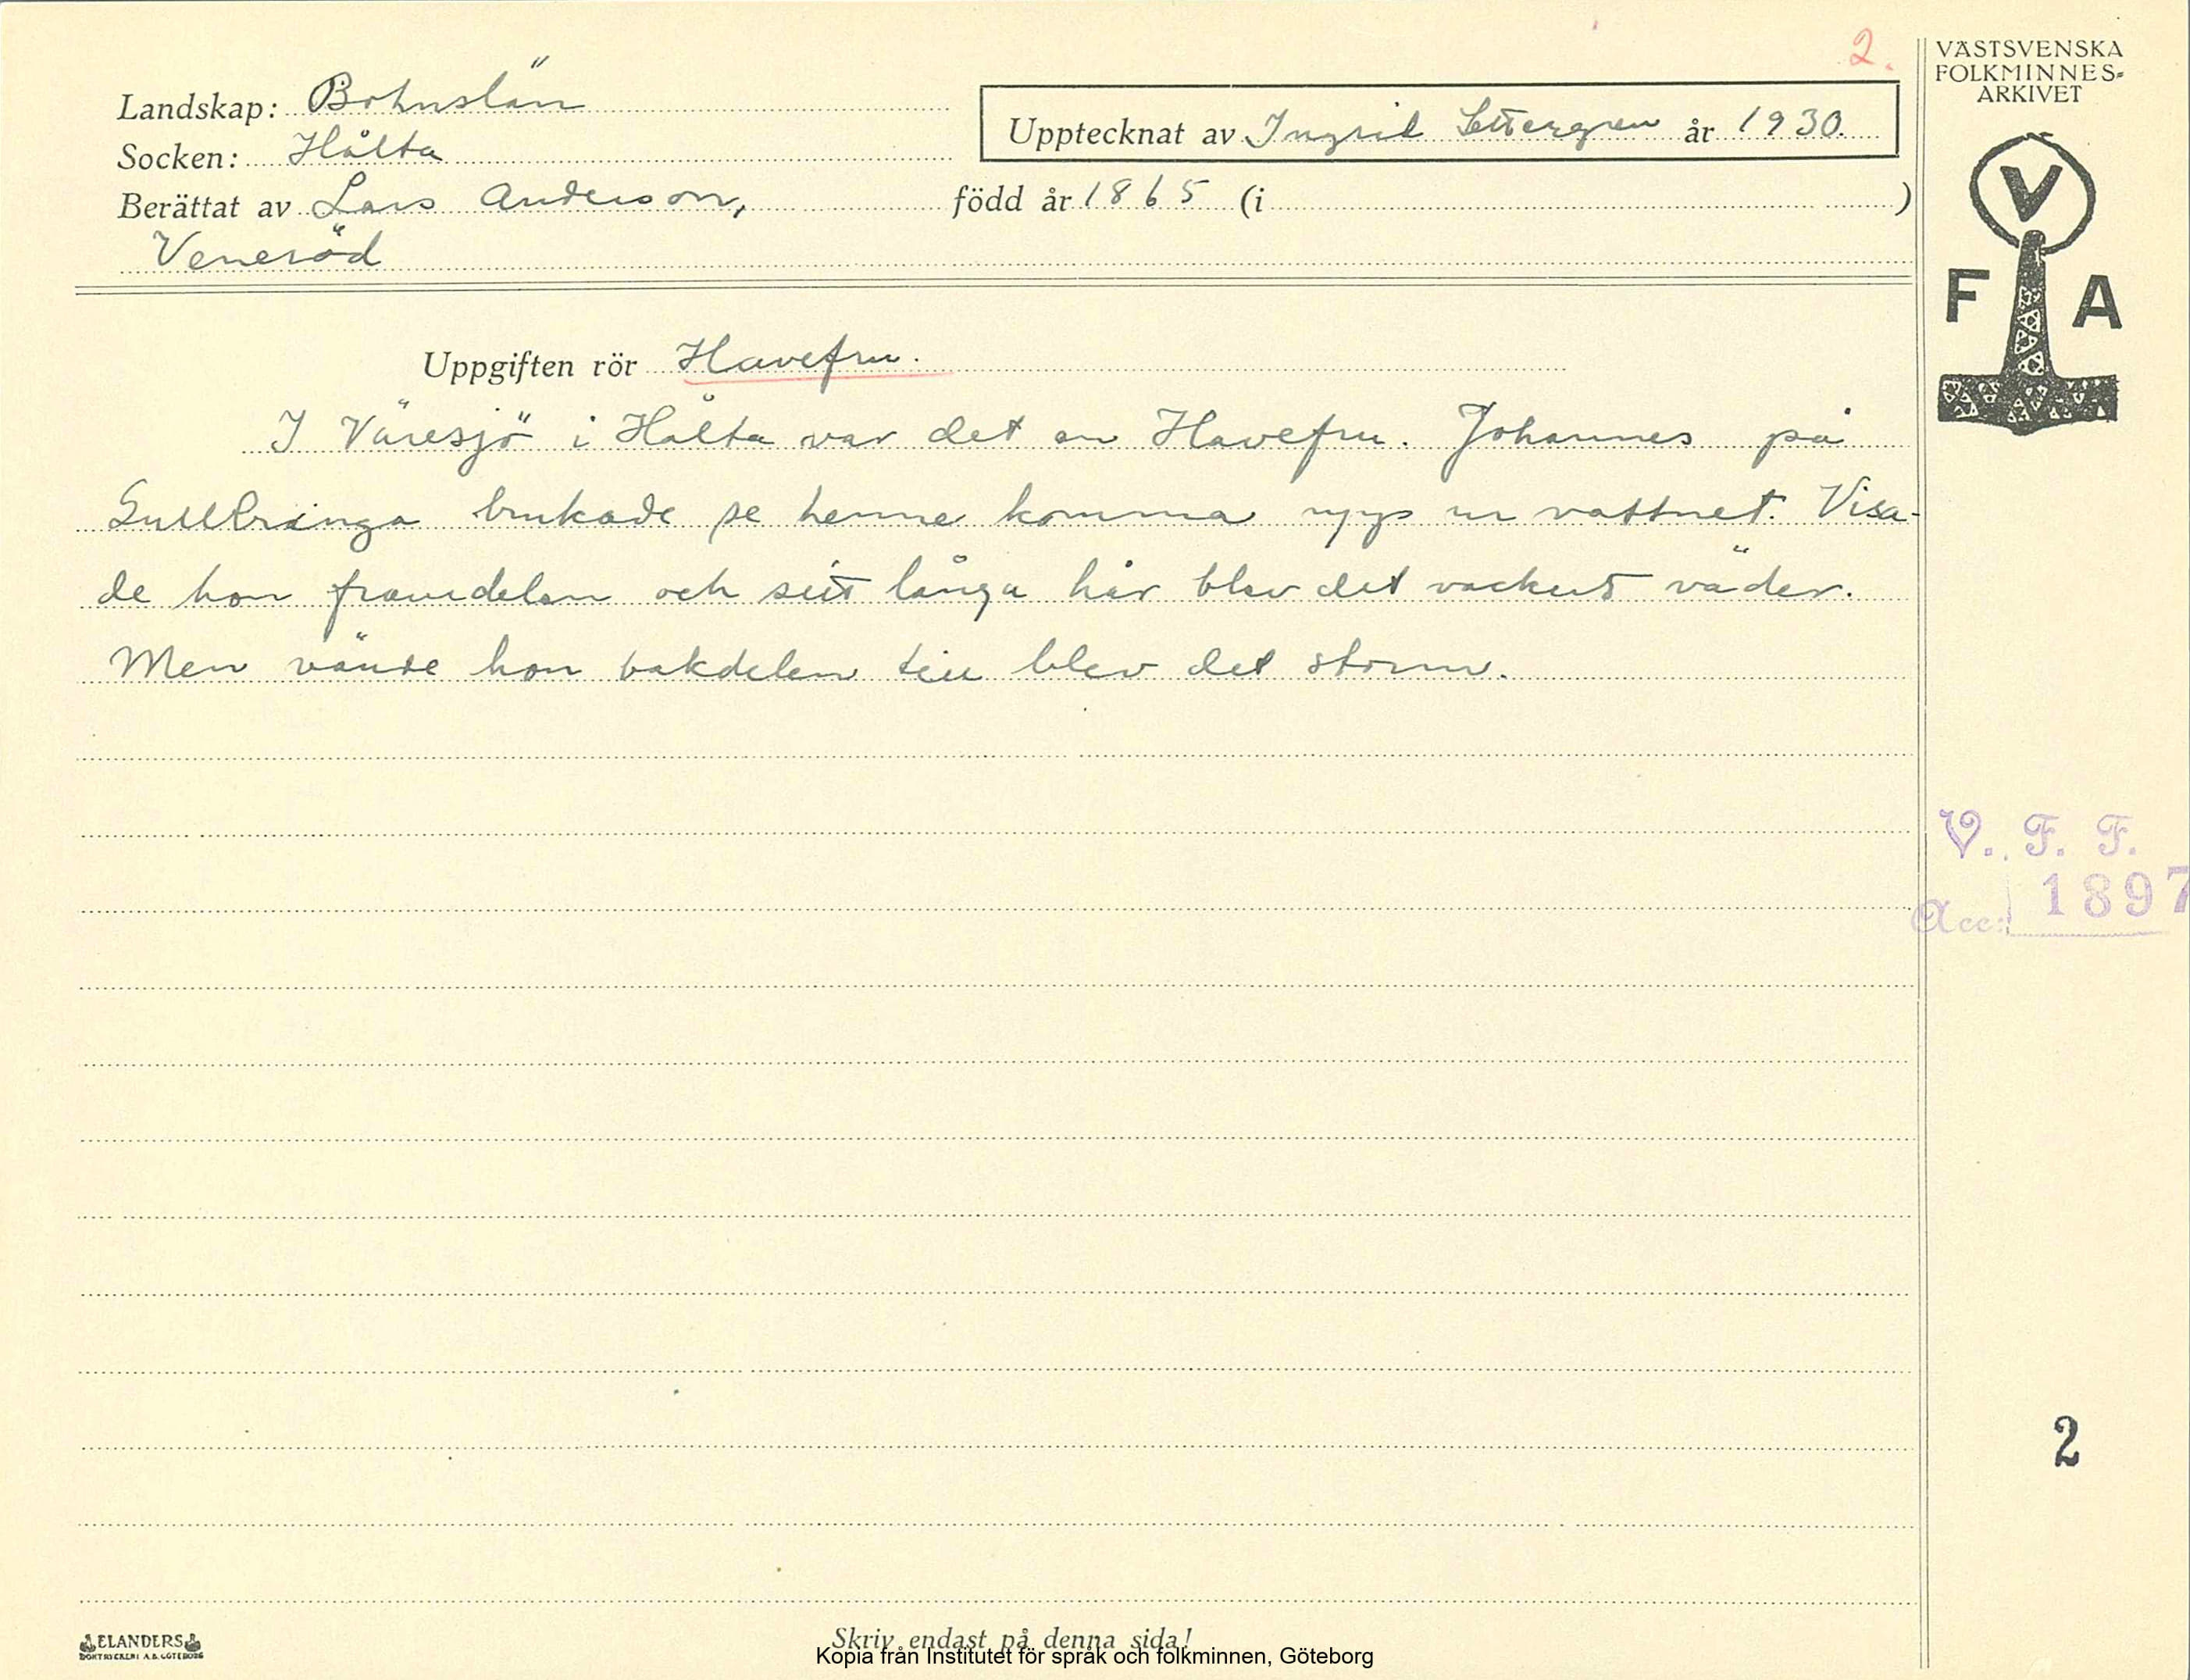 2.
VÄSTSVENSKA
FOLKMINNES-
ARKIVET
Landskap: Bohuslän
Upptecknat av Ingrid Settergren år 1930.
Socken: Hålta
Berättat av Lars Anderson, född år 1865 (i )
Veneröd
V
F A
Uppgiften rör Havefru.
I Väresjö i Hålta var det en Havefru. Johannes på
Gullbringa brukade se henne komma upp ur vattnet. Visa-
de hon framdelen och sitt långa hår blev det vackert väder.
Men vände hon bakdelen till blev det storm.
V. F. F.
Acc: 1897
2
Skriv endast på denna sida!
ELANDERS
BOKTRYCKERI A.B. GÖTEBORG
Kopia från Institutet för språk och folkminnen, Göteborg